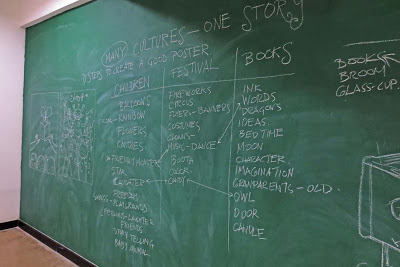 MANY CULTURES - ONE STORY
TO CREATE A GOOD POSTER
CHILDREN
BALLOONS
RAINBOW
FLOWERS
STAR
FREEDOM
FRIENDS
STORY TELLING
BABY ANIMAL
FESTIVAL
FIREWORKS
CIRCUS
FLYERS - BANNERS
COSTUMES
CLOWNS
MUSIC - DANCE
BOOTH
COLOR
CANDY
BOOKS
INK
WORDS
DRAGONS
IDEAS
BEDTIME
MOON
CHARACTER
IMAGINATION
GRANPARENTS - OLD
OWL
DOOR
CANDLE
BOOKS
BROOM
GLASS-CUP